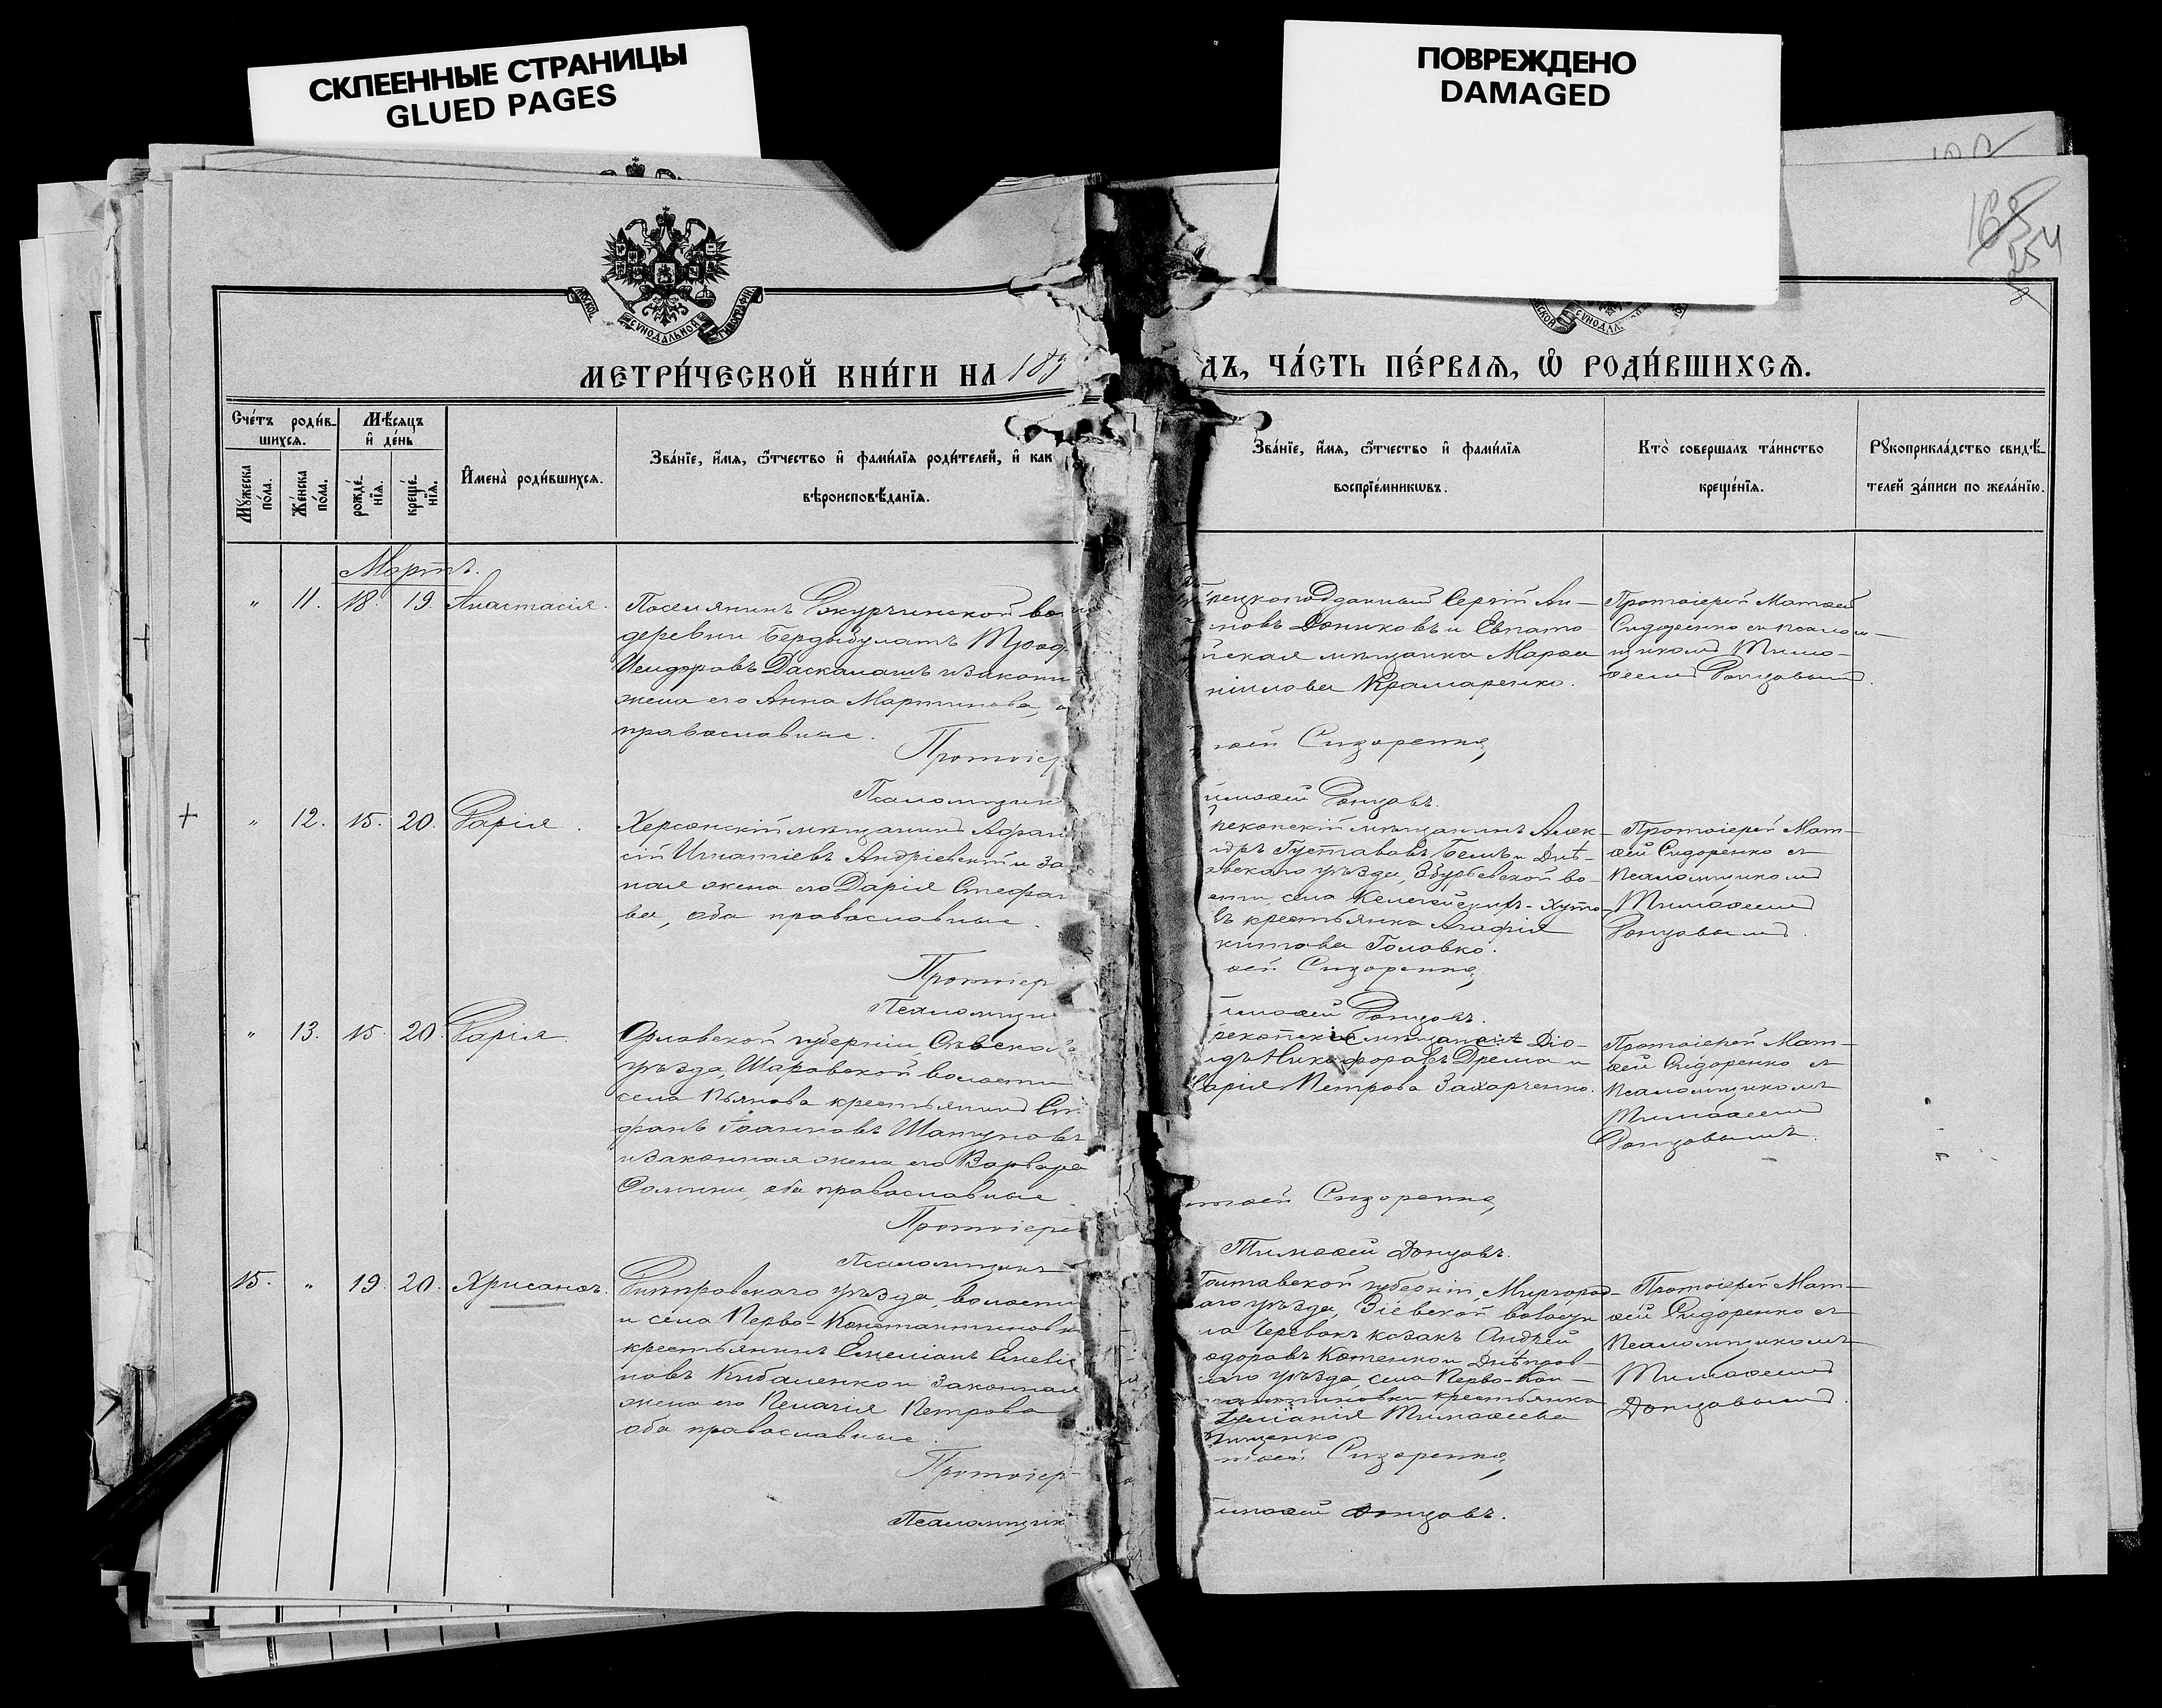 СКЛЕЕННЫЕ СТРАНИЦЫ
GLUED PAGES
ПОВРЕЖДЕНО
DAMAGED
254
МОСКОВ. СѴНОДАЛЬНОЙ ТИПОГРАФІИ
МЕТРИ́ЧЕСКОЙ КНИ́ГИ НА 189
ДЪ, ЧА́СТЬ ПЕ́РВАѦ, Ѽ РОДИ́ВШИХСѦ.
Сче́тъ роди́в-
шихсѧ.
Мѣ́сѧцъ
и҆ де́нь
Мꙋ́жеска по́ла.
Же́нска по́ла.
рожде́нїѧ.
креще́нїѧ.
И҆мена̀ роди́вшихсѧ.
Зва́нїе, и҆́мѧ, ѻ҆́тчество и҆ фами́лїѧ роди́телей, и҆ как
вѣроисповѣ́данїѧ.
Зва́нїе, и҆́мѧ, ѻ҆́тчество и҆ фами́лїѧ
воспрїе́мникѡвъ.
Кто̀ соверша́лъ та́инство
креще́нїѧ.
Рꙋкоприкла́дство свидѣ́-
телей за́писи по жела́нїю.
Мартъ.
" 11. 18. 19. Анастасія.
Поселянинъ во
деревни Бердыбулатъ
Исидоровъ Даскалашъ и законн
жена его Анна Мартинова, о
православные.
Протоіер
Псаломщик
рецкоподданный Сергій Ан-
новъ Дониковъ и Евпато
йская мѣщанка Марѳа
ніилова Крамаренко.
ѳей Сидоренко,
имоѳей Донцовъ.
Протоіерей Матѳей
Сидоренко съ псалом-
щикомъ Тимо-
ѳеемъ Донцовымъ.
" 12. 15. 20. Дарія.
Херсонскій мѣщанинъ Афана
сій Игнатіевъ Андріевскій и за
ная жена его Дарія Стефан
ва, оба православные.
Протоіер
Псаломщи
рекопскій мѣщанинъ Алек-
ндръ Густавовъ Бемъ и Днѣ-
овскаго уѣзда, Збурьевской во-
сти, села Келегейскихъ-Хуто-
въ крестьянка Агафія
китова Головко.
ѳей Сидоренко,
имоѳей Донцовъ.
Протоіерей Мат-
ѳей Сидоренко съ
Псаломщикомъ
Тимоѳеемъ
Донцовымъ.
" 13. 15. 20. Дарія.
Орловской губерніи, Сѣвскаго
уѣзда, Шаровской волости
села Пьянова крестьянинъ Сте
фанъ Іоанновъ Шатуновъ
и законная жена его Варвара
Фомина, оба православные
Протоіере
Псаломщикъ
рекопскій мѣщанинъ Діо-
идъ Никифоровъ Дрема и
Дарія Петрова Захарченко.
тѳей Сидоренко,
Тимоѳей Донцовъ.
Протоіерей Мат-
ѳей Сидоренко съ
Псаломщикомъ
Тимоѳеемъ
Донцовымъ.
15. " 19. 20. Хрисанѳъ.
Днѣпровскаго уѣзда, волости
и села Перво-Константиновк
крестьянинъ Емеліанъ
новъ Кибаленко и законная
жена его Пелагія Петрова
оба православные.
Протоіер
Псаломщик
Полтавской губерніи, Миргород-
аго уѣзда, волости
ла Черевокъ козакъ Андрей
одоровъ Котенко и Днѣпров-
аго уѣзда села Перво-Кон-
стантиновки крестьянка
Тимоѳеева
тѳей Сидоренко,
имоѳей Донцовъ.
Протоіерей Мат-
ѳей Сидоренко съ
Псаломщикомъ
Тимоѳеемъ
Донцовымъ.